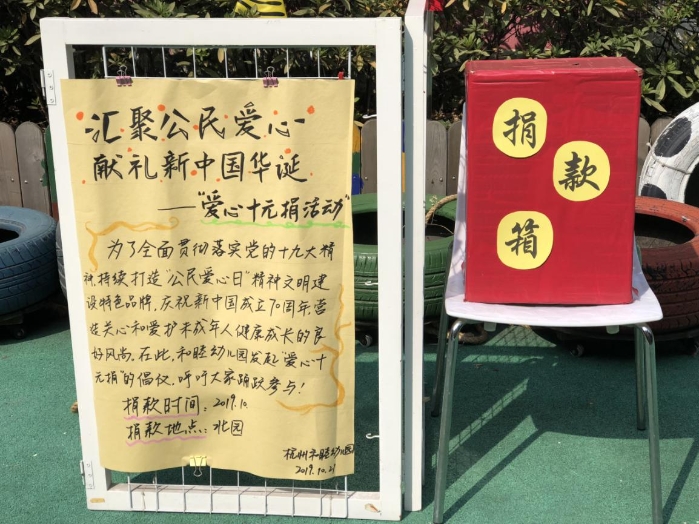 汇聚公民爱心
献礼新中国华诞
——"爱心十元捐活动"
为了全面贯彻落实党的十九大精
神,持续打造"公民爱心日"精神文明建
设特色品牌,庆祝新中国成立70周年,营
造关心和爱护未成年人健康成长的良
好风尚。在此,和睦幼儿园发起"爱心十
元捐"的倡仪,呼吁大家踊跃参与!
捐款时间:2019.10.
捐款地点:北园
杭州和睦幼儿园
2019.10.21
捐
款
箱